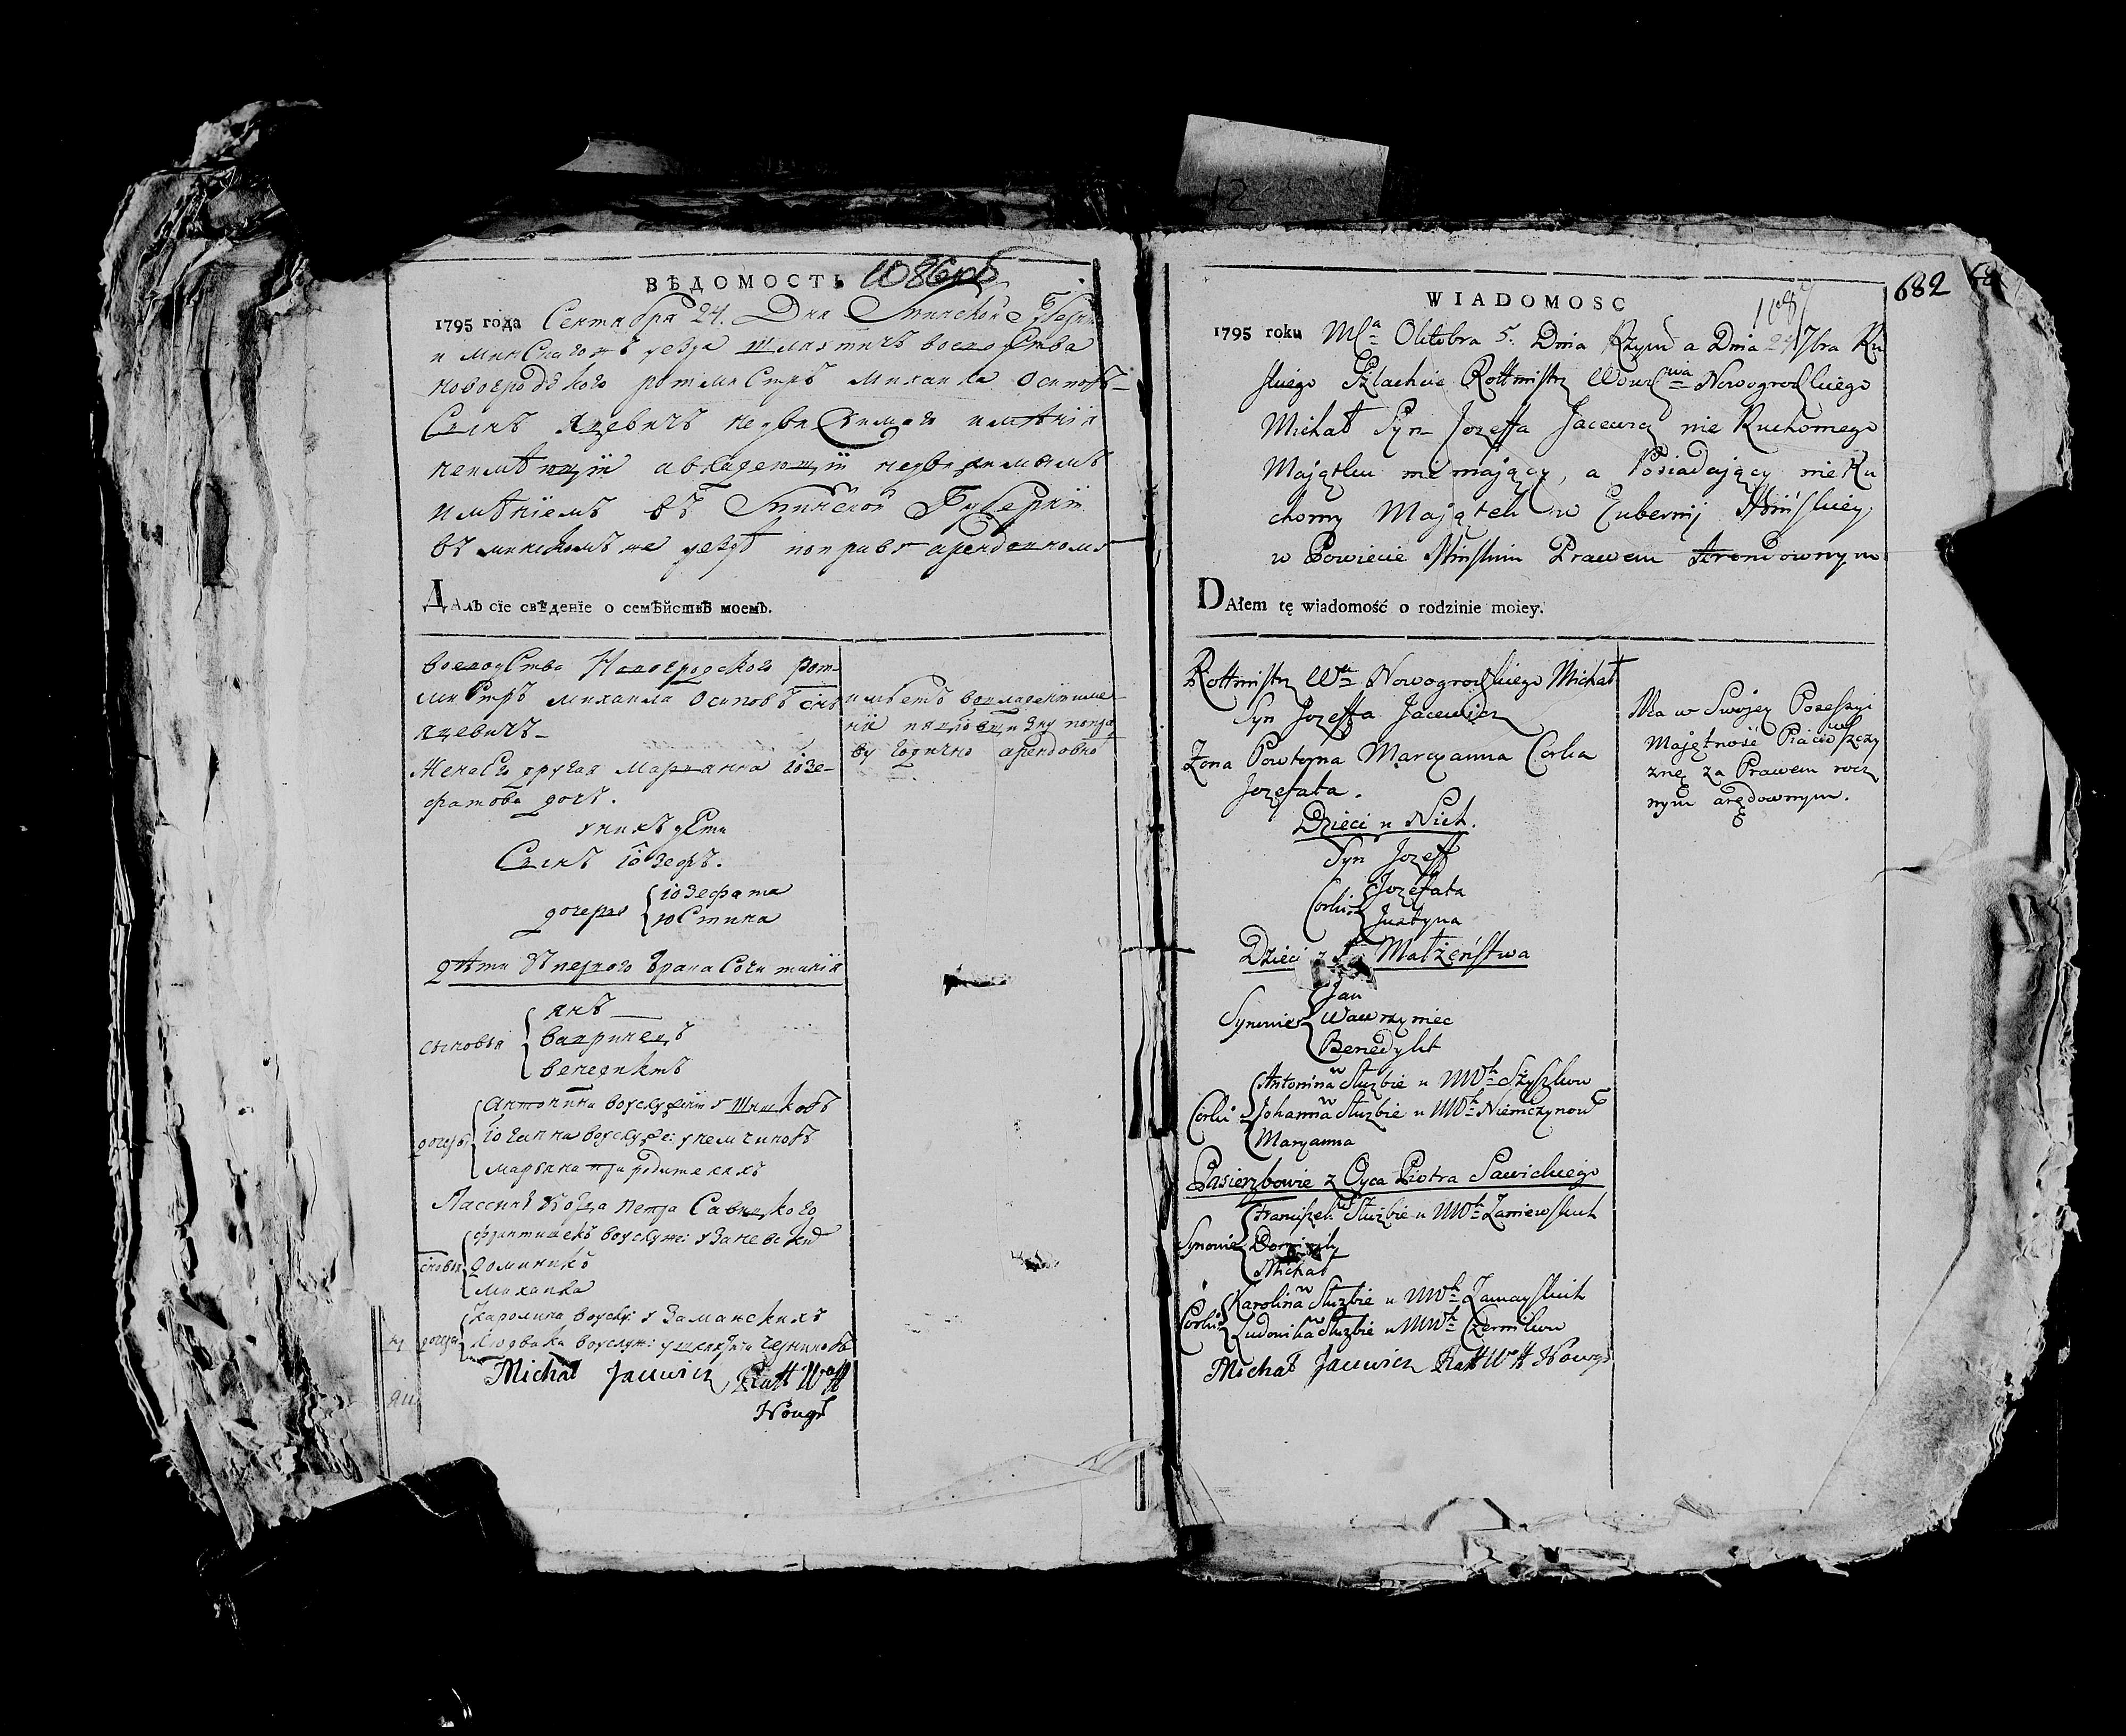 ВѢДОМОСТЬ 1086
1795 года Сентября 24. Дня Минской Губерніи
и минскагожъ уезда шляхтичъ воеводства
новогродского ротмистръ михаила осиповъ
Сынъ яцевичъ недвижимаго имѣнія
неимѣющій авладеющій недвижимымъ
имѣніемъ въ Минской Губерніи
въ минскомъже уездѣ поправу арендовному
Далъ сіе свѣденіе о семѣйствѣ моемъ.
воеводства Новогродского рот
мистръ михаила осиповъ снъ
яцевичъ
Жена его другая Марьянна іозе-
фатова дочъ.
унихъ дети
Сынъ іозефъ.
дочери іозефата
юстина
дѣти первого брака Сочитанія
сыновья янъ
вавринецъ
бенедиктъ
дочери антонина воуслуженіи у Шышковъ
іоганна воуслуже: унемчиновъ
марьяна при родителяхъ
Пассынки отца петра Савицкого
францишекъ воуслуже: узаневскихъ
сновья доминикъ
михаила
каролина воуслу: у Заманскихъ
дочери людвика воуслуж: у черниковъ
Michał Jacewicz Rott Wff
Nowgr
имѣетъ вовладеніи име
ніе попра
ву годично арендовно
12
682
WIADOMOSC
108
1795 roku Mca Oktobra 5. Dnia Rzym a Dnia 24 7bra Ru
skiego Szlachcic Rottmistrz Wowdwa Nowogrodskiego
Michał Syn Jozeffa Jacewicz nie Ruchomego
Majątku niemający, a Posiadający nieRu
chomy Majątek w Gubernij Mińskiey
w Powiecie Minskim Prawem Arendownym
DAłem tę wiadomość o rodzinie moiey.
Rottmistrz Wa Nowogrodskiego Michał
Syn Jozeffa Jacewicz
Zona Powtorna Maryanna Corka
Jozefata.
Dzieci u Nich.
Syn Jozeff
Corki Jozefata
Justyna
Dzieci z Małżeństwa
Synowie Jan
Wawrzyniec
Benedykt
Antonina w Służbie u WWch Szyszkow
Corki Johanna w Służbie u WWch Niemczynow
Maryanna
Pasierzbowie z Oyca Piotra Sawickiego
Franciszek w Służbie u WWch Zaniewskich
Synowie Dominik
Michał
Karolina w Służbie u WWch Zamayskich
Corki Ludowika w Służbie u WWch Czernikow
Michał Jacewicz Rott Wff Nowgr
Ma w Swojey Possesyi
Majętność Piaciewszczy
znę za Prawem rocz
nym arędownym.